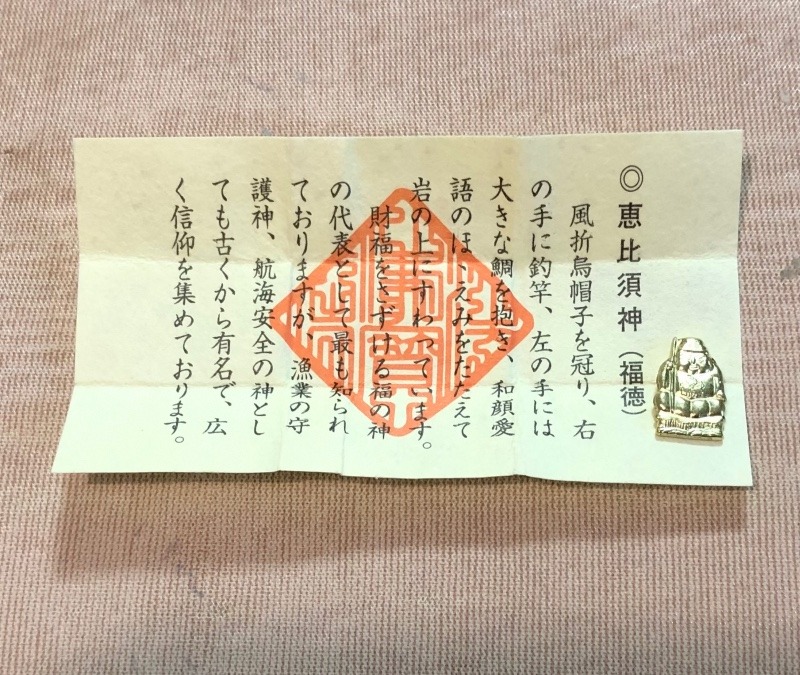 ◎恵比須神（福徳）
風折烏帽子を冠り、右
の手に釣竿、左の手には
大きな鯛を抱き、和顔愛
語のほゝえみをたたえて
岩の上にすわっています。
財福をさずける福の神
の代表として最も知られ
ておりますが、漁業の守
護神、航海安全の神とし
ても古くから有名で、広
く信仰を集めております。